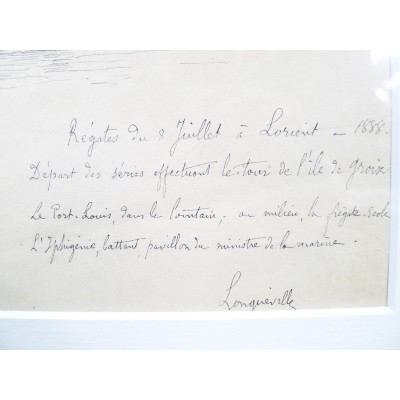 Régates du 8 Juillet à Lorient - 1888.
Départ des séries effectuant le tour de l'île de Groix
Le Port-Louis, dans le lointain, au milieu, la frégate-école
L'Iphigénie, battant pavillon du ministre de la marine.
Longueville